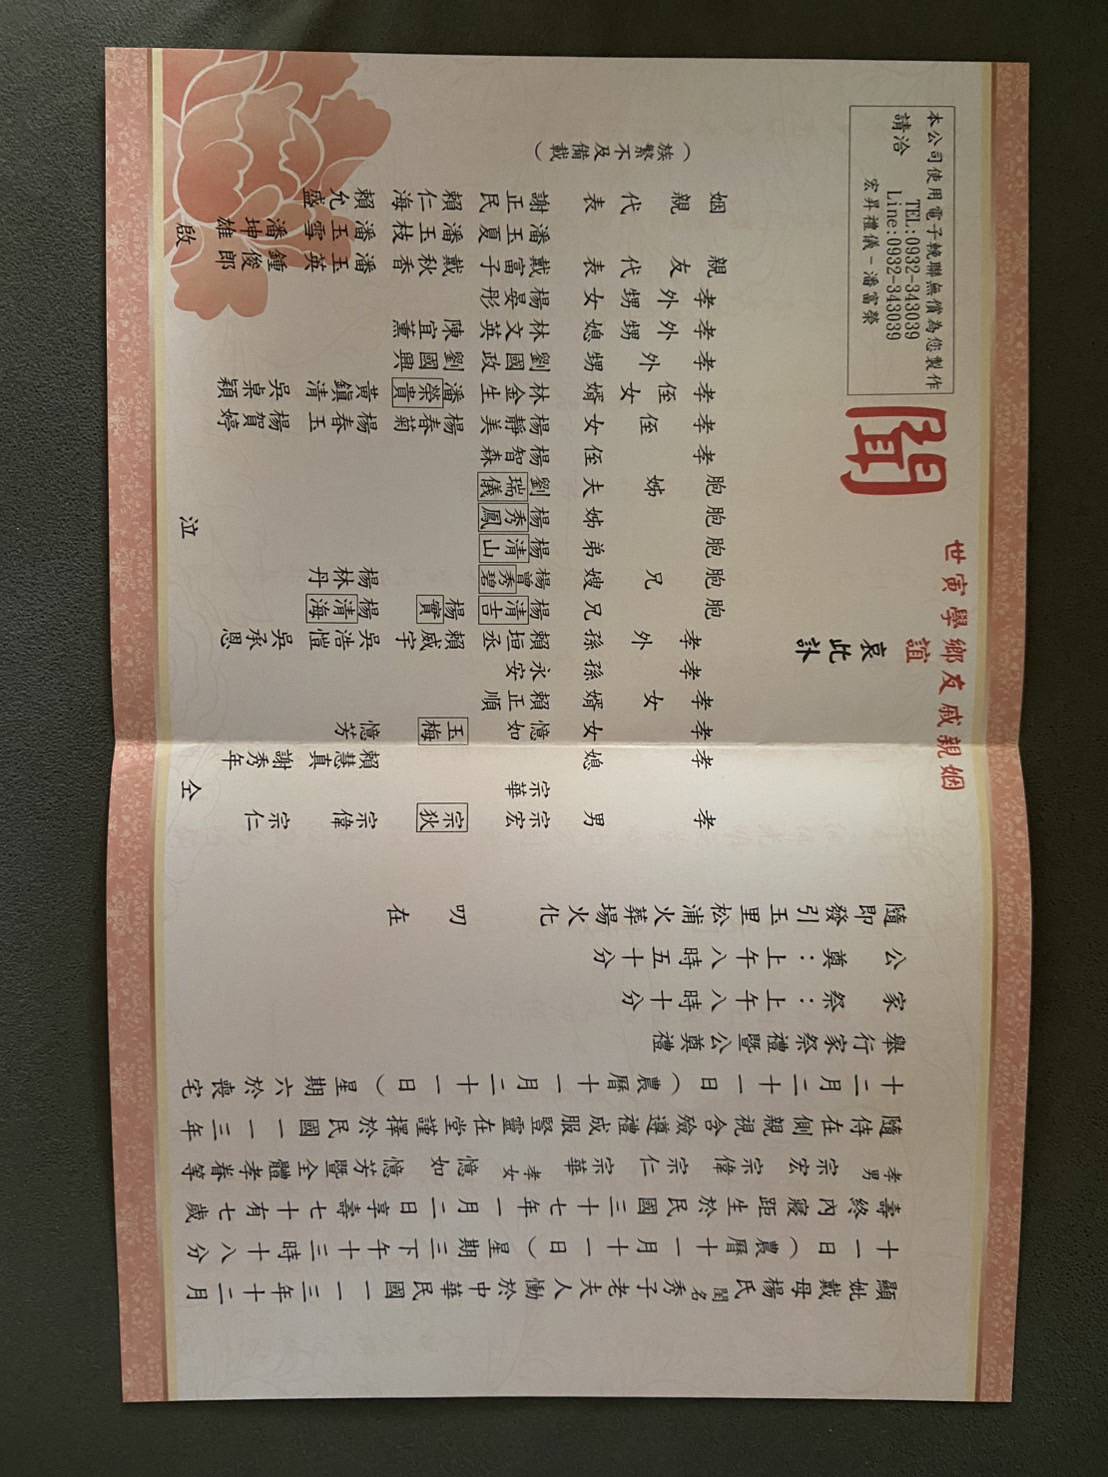 顯妣戴母楊氏閨名秀子老夫人慟於中華民國一一三年十二月
十一日(農曆十一月十一日)星期三下午十三時十八分
壽終內寢距生於民國三十七年一月二日享壽七十有七歲
孝男宗宏 宗偉 宗仁 宗華 孝女憶如 憶芳暨全體孝眷等
隨侍在側親視含殮遵禮成服豎靈在堂謹擇於民國一一三年
十二月二十一日(農曆十一月二十一日)星期六於喪宅
舉行家祭禮暨公奠禮
家祭:上午八時十分
公奠:上午八時五十分
隨即發引玉里松浦火葬場火化 叨在
孝男 宗宏 宗狄 宗偉 宗仁 仝
宗華
孝媳 賴慧真 謝秀年
孝女 憶如 玉梅 憶芳
孝女婿 賴正順
孝孫 永安
孝外孫 賴垣丞 賴威宇 吳浩愷 吳承恩
胞兄 楊清吉 楊寶 楊清海
胞兄嫂 楊曾秀碧 楊林丹
胞弟 楊清山
胞姊 楊秀鳳
胞姊夫 劉瑞儀 泣
孝侄 楊智森
孝侄女 楊靜美 楊春菊 楊春玉 楊賀婷
孝侄女婿 林金生 潘榮貴 黃鎮清 吳桌穎
孝外甥 劉國政 劉國興
孝外甥媳 林文英 陳宜薰
孝外甥女 楊晏彤
親友代表 戴富子 戴秋香 潘玉英 鍾俊郎
潘玉夏 潘玉枝 潘玉雪 潘坤雄 啟
姻親代表 謝正民 賴仁海 賴允盛
(族繁不及備載)
世寅學鄉友戚親姻
誼
哀
此
訃
聞
本公司使用電子輓聯無償為您製作
請洽 TEL:0932-343039
Line:0932-343039
宏昇禮儀-潘富榮